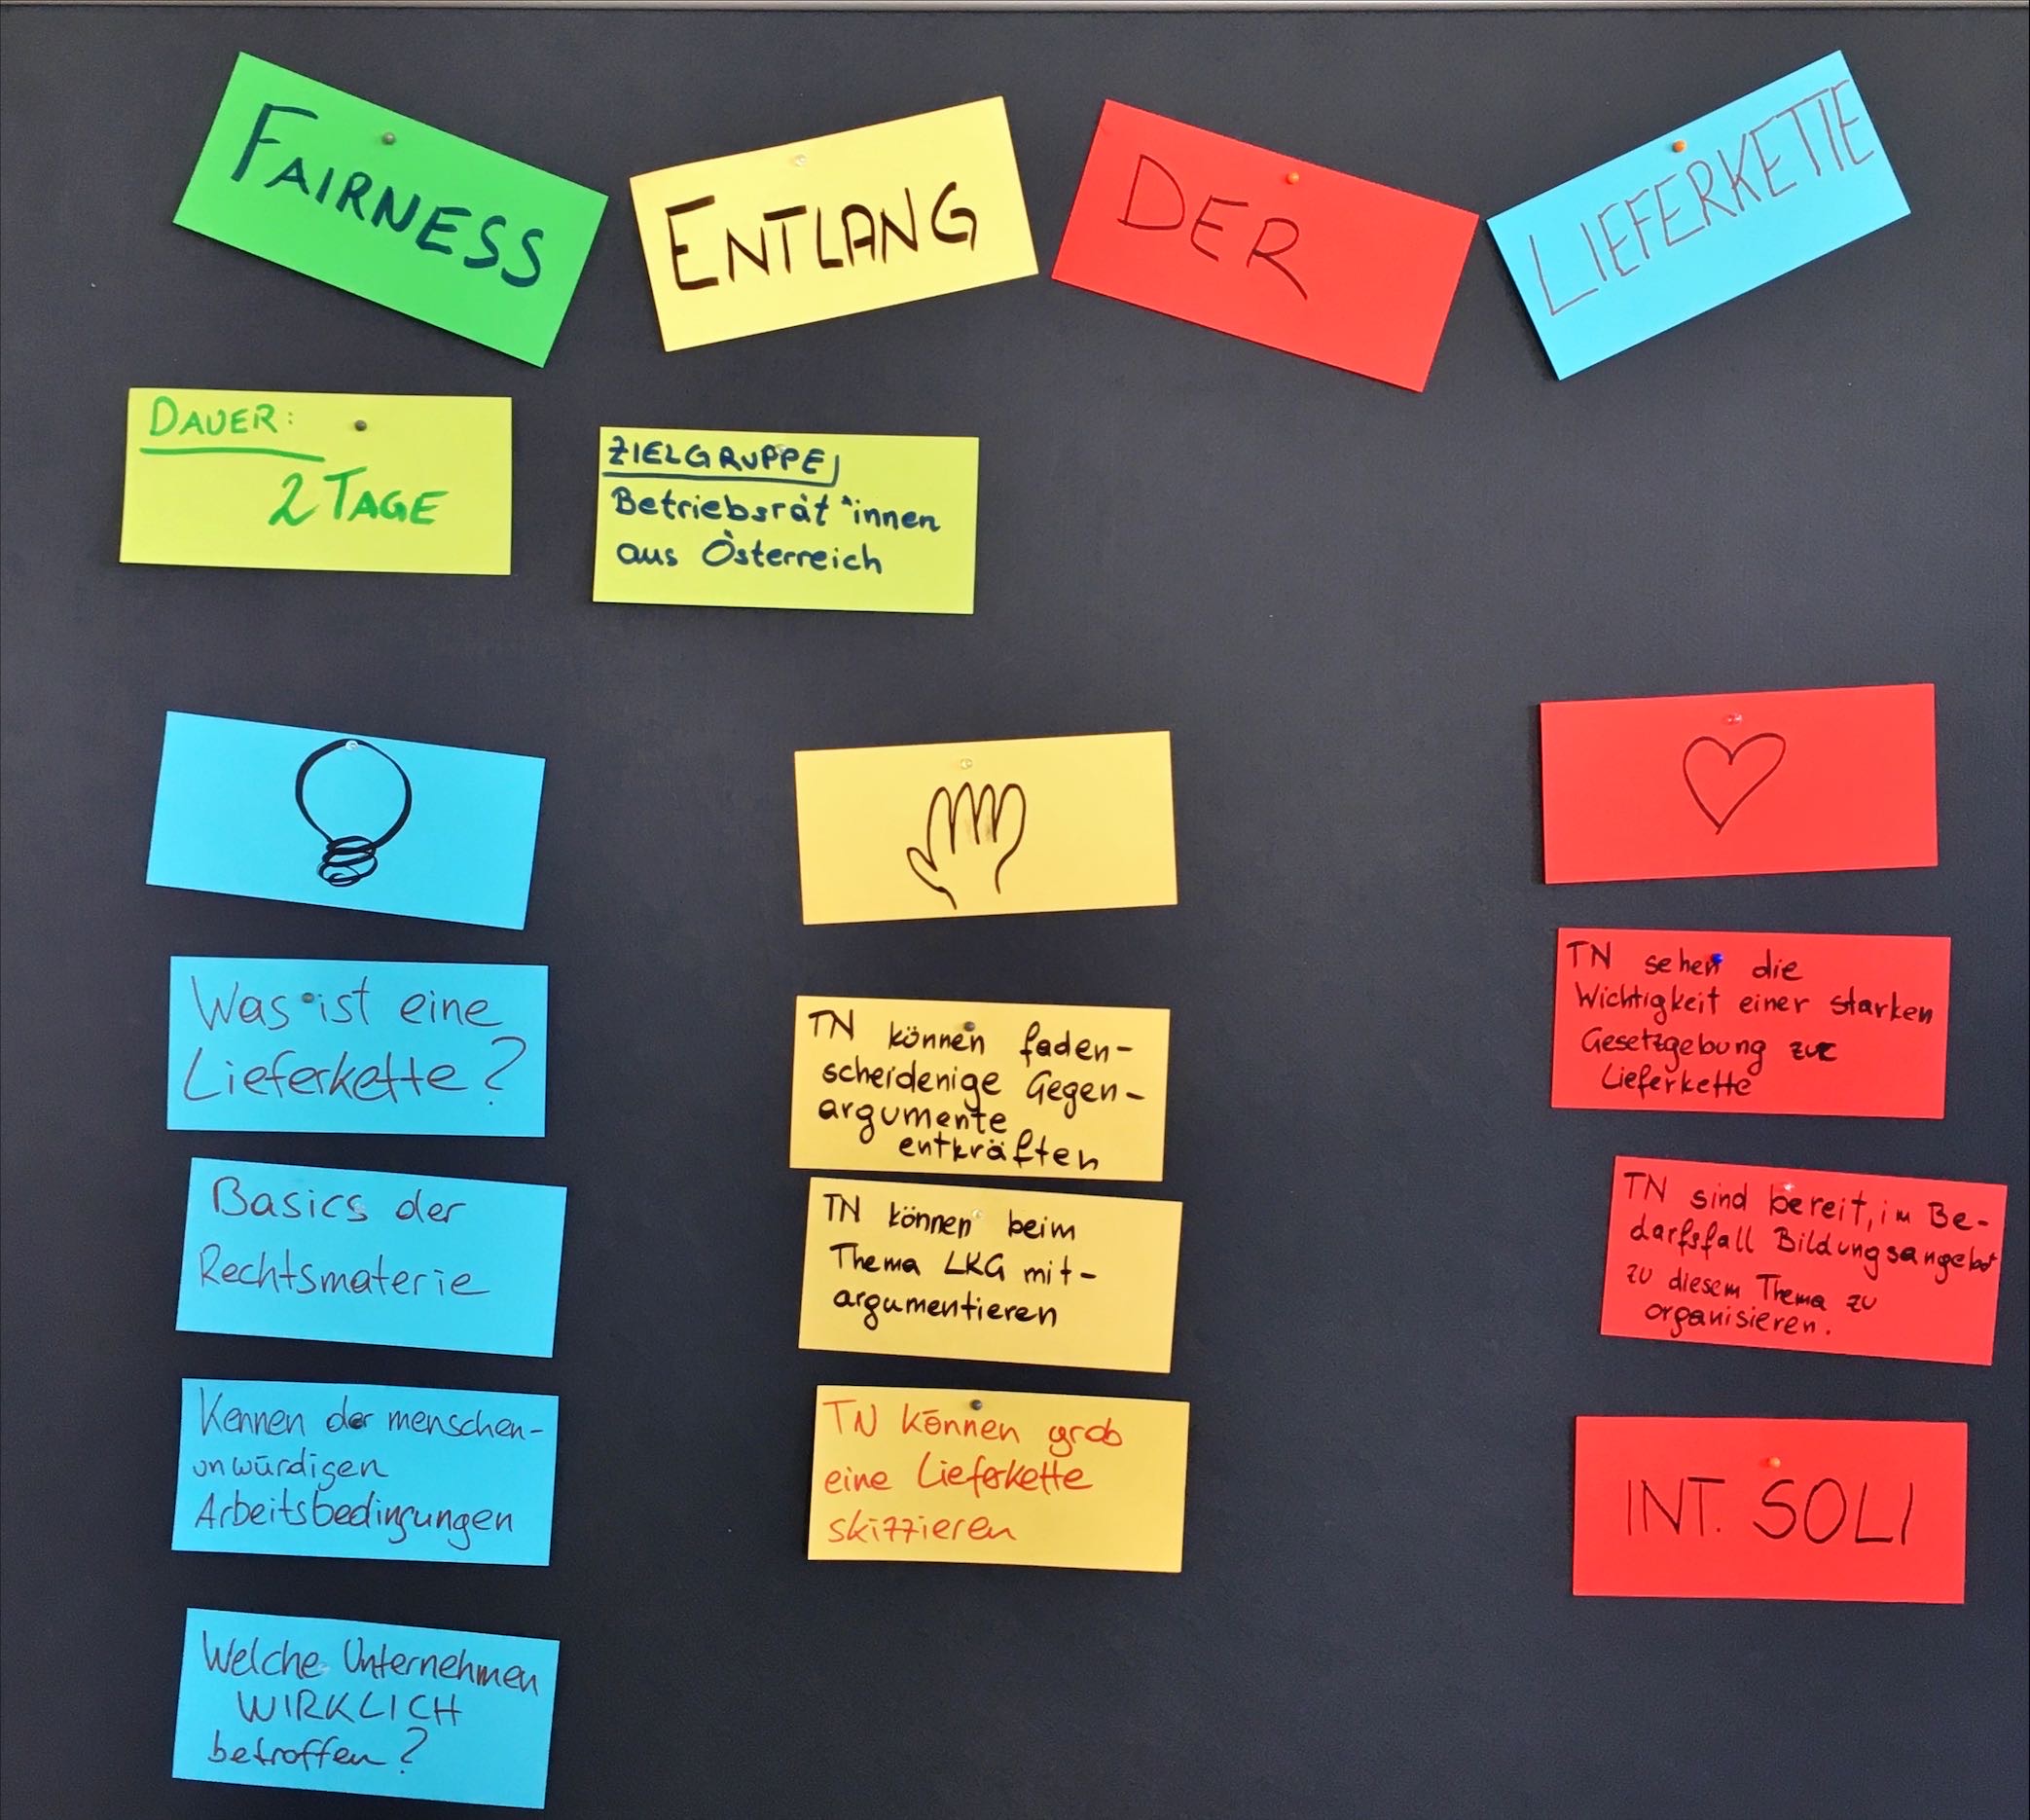 FAIRNESS
ENTLANG
DER
LIEFERKETTE
DAUER:
2 TAGE
ZIELGRUPPE
Betriebsrät*innen
aus Österreich
Was ist eine
Lieferkette?
Basics der
Rechtsmaterie
Kennen der menschen-
unwürdigen
Arbeitsbedingungen
Welche Unternehmen
WIRKLICH
betroffen?
TN können faden-
scheidenige Gegen-
argumente
entkräften
TN können beim
Thema LKG mit-
argumentieren
TN können grob
eine Lieferkette
skizzieren
TN sehen die
Wichtigkeit einer starken
Gesetzgebung zur
Lieferkette
TN sind bereit, im Be-
darfsfall Bildungsangebot
zu diesem Thema zu
organisieren.
INT. SOLI